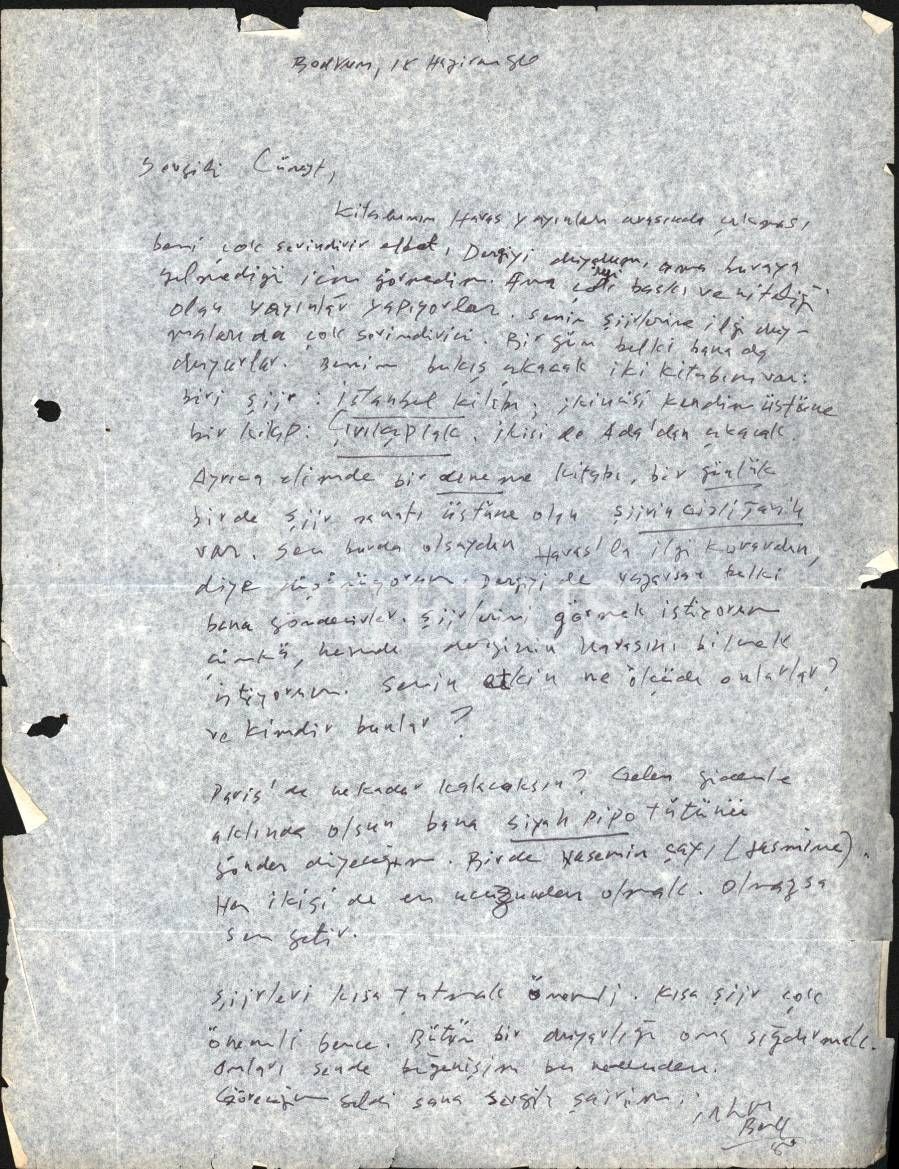 Bodrum, 18 Haziran
Sevgili Cüneyt,
Kitabımın Havas yayınları arasında çıkması,
beni çok sevindirir elbet. Dergiyi duydum, ama buraya
gelmediği için görmedim. Ama iyi baskı ve niteliği
olan yayınlar yapıyorlar. Senin şiirlerine ilgi duy-
maları da çok sevindirici. Bir gün belki bana da
duyarlar. Benim bu kış çıkacak iki kitabım var:
biri şiir: İstanbul Kitabı; ikincisi kendim üstüne
bir kitap: Çırılçıplak. İkisi de Ada'dan çıkacak.
Ayrıca elimde bir deneme kitabı, bir günlük
birde şiir sanatı üstüne olan Şiirin Gizli Tarihi
var. Sen burda olsaydın Havas'la ilgi kurardın,
diye düşünüyorum. Dergiyi de yazarsan belki
bana gönderirler. Şiirlerini görmek istiyorum
çünkü, hemde derginin havasını bilmek
istiyorum. Senin etkin ne ölçüde onlarlar?
ve kimdir bunlar?
Paris'de nekadar kalacaksın? Gelen gidenle
aklında olsun bana siyah pipo tütünü
gönder diyeceğim. Birde Yasemin çayı (Jasmine).
Her ikisi de en ucuzundan olmak. Olmazsa
sen getir.
Şiirleri kısa tutmak önemli. Kısa şiir çok
önemli bence. Bütün bir duyarlığı ona sığdırmak.
Onları sende beğenişim bu nedenden.
Göreceğim geldi sana sevgili şairim.
İlhan
Berk